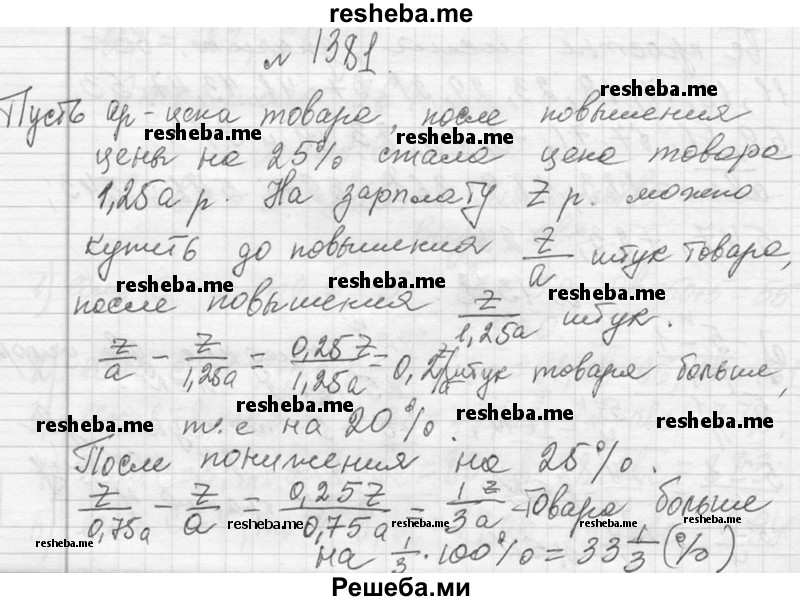 resheba.me
№ 1381.
resheba.me
Пусть ар-цена товара, после повышения
resheba.me resheba.me
цены на 25% стала цена товара
1,25а р. На зарплату Z р. можно
купить до повышения Z/a штук товара,
resheba.me resheba.me
после повышения Z/1,25a штук.
Z/a - Z/1,25a = 0,25Z/1,25a = 0,2 Z/a штук товара больше,
resheba.me resheba.me resheba.me resheba.me
т.е на 20%.
После понижения на 25%.
Z/0,75a - Z/a = 0,25Z/0,75a = 1/3 Z/a товара больше
resheba.me resheba.me resheba.me resheba.me
на 1/3 · 100% = 33 1/3 (%)
Решеба.ми